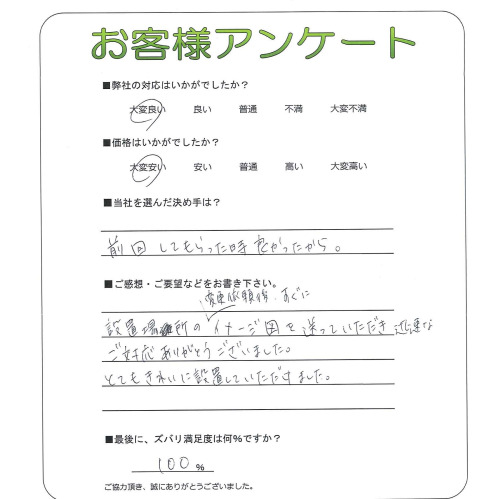 お客様アンケート
■弊社の対応はいかがでしたか？
大変良い 良い 普通 不満 大変不満
■価格はいかがでしたか？
大変安い 安い 普通 高い 大変高い
■当社を選んだ決め手は？
前回してもらった時良かったから。
■ご感想・ご要望などをお書き下さい。
変更依頼後、すぐに
設置場所のイメージ図を送っていただき迅速な
ご対応ありがとうございました。
とてもきれいに設置していただけました。
■最後に、ズバリ満足度は何%ですか？
100 %
ご協力頂き、誠にありがとうございました。